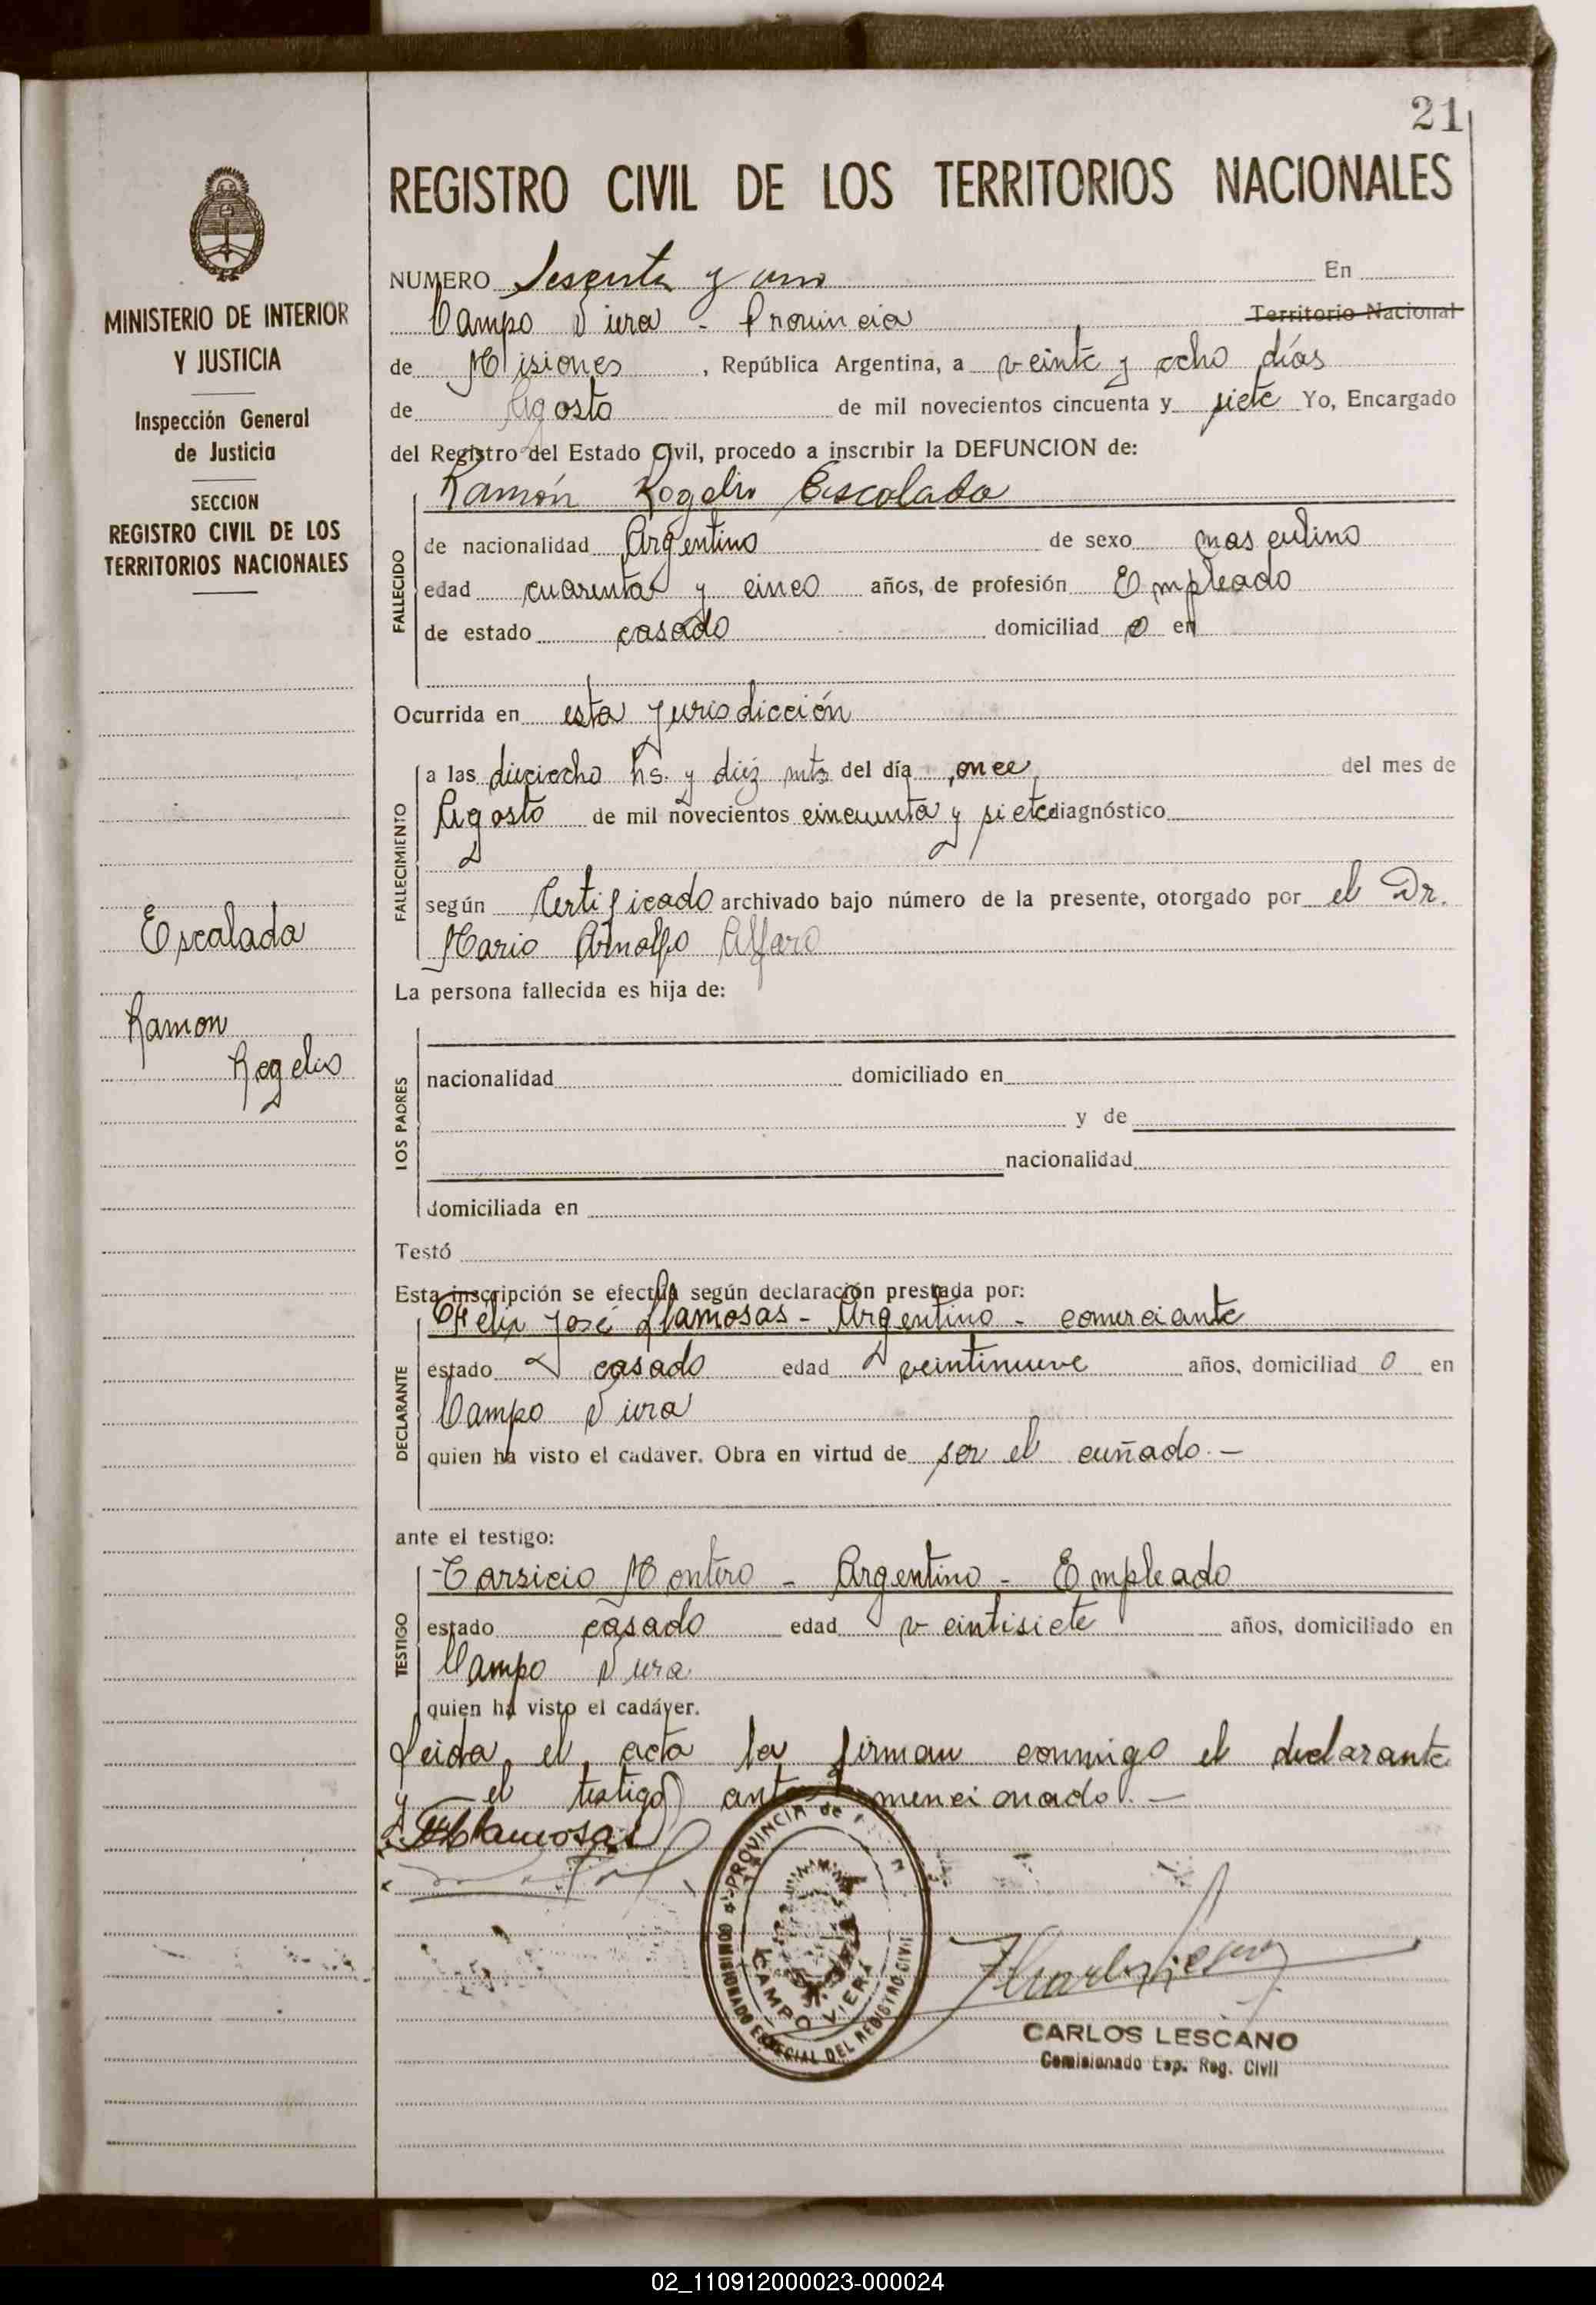 21
REGISTRO CIVIL DE LOS TERRITORIOS NACIONALES
MINISTERIO DE INTERIOR
Y JUSTICIA
Inspección General
de Justicia
SECCION
REGISTRO CIVIL DE LOS
TERRITORIOS NACIONALES
Escalada
Ramon
Rogelio
NUMERO Sesenta y uno En
Campo Viera - Provincia Territorio Nacional
de Misiones, República Argentina, a veinte y ocho días
de Agosto de mil novecientos cincuenta y siete Yo, Encargado
del Registro del Estado Civil, procedo a inscribir la DEFUNCION de:
Ramón Rogelio Escalada
FALLECIDO
de nacionalidad Argentino de sexo masculino
edad cuarenta y cinco años, de profesión Empleado
de estado casado domiciliado en
Ocurrida en esta jurisdicción
FALLECIMIENTO
a las dieciocho hs. y diez mts del día once del mes de
Agosto de mil novecientos cincuenta y siete diagnóstico
según Certificado archivado bajo número de la presente, otorgado por el Dr.
Mario Arnolfo Alfaro
La persona fallecida es hija de:
LOS PADRES
nacionalidad domiciliado en
y de
nacionalidad
domiciliada en
Testó
Esta inscripción se efectúa según declaración prestada por:
DECLARANTE
Felix José Llamosas - Argentino - comerciante
estado casado edad veintinueve años, domiciliado en
Campo Viera
quien ha visto el cadáver. Obra en virtud de ser el cuñado. -
ante el testigo:
TESTIGO
Tarsicio Montero - Argentino - Empleado
estado casado edad veintisiete años, domiciliado en
Campo Viera
quien ha visto el cadáver.
Leida el acta la firman conmigo el declarante
y el testigo antes mencionado. -
Llamosas
PROVINCIA de
CAMPO VIERA
COMISIONADO ESPECIAL DEL REGISTRO CIVIL
CARLOS LESCANO
Comisionado Esp. Reg. Civil
02_110912000023-000024